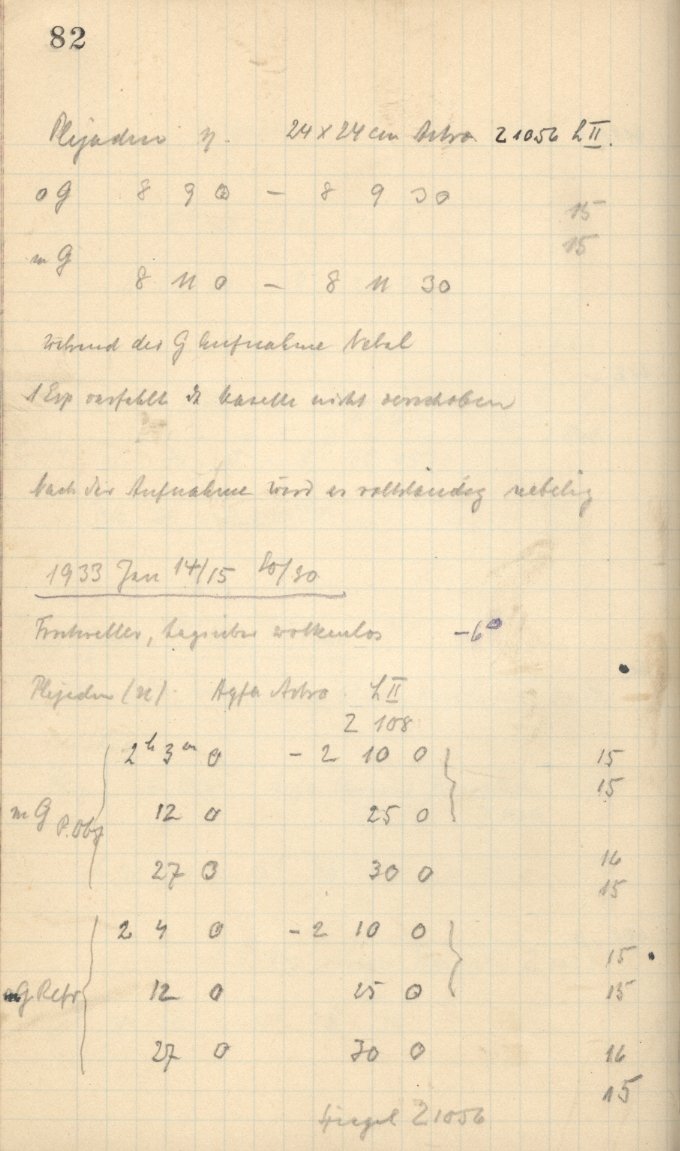 82
Plejaden η. 24 x 24 cm Astro Z 1056 L II.
o G 8 9 0 – 8 9 30
15
15
m G
8 11 0 – 8 11 30
während der G Aufnahme Nebel
1 Exp verfehlt da Kasette nicht verschoben
Nach der Aufnahme wird es vollständig nebelig
1933 Jan 14/15 So/
Frostwetter, tagsüber wolkenlos –6°
Plejaden (η). Agfa Astro L II
Z 108
2h 3m 0 – 2 10 0 15
15
m G P. Obj 12 0 25 0
27 0 30 0 16
15
2 4 0 – 2 10 0
15
G Refr 12 0 25 0 15
27 0 30 0 16
15
Spiegel Z 1056